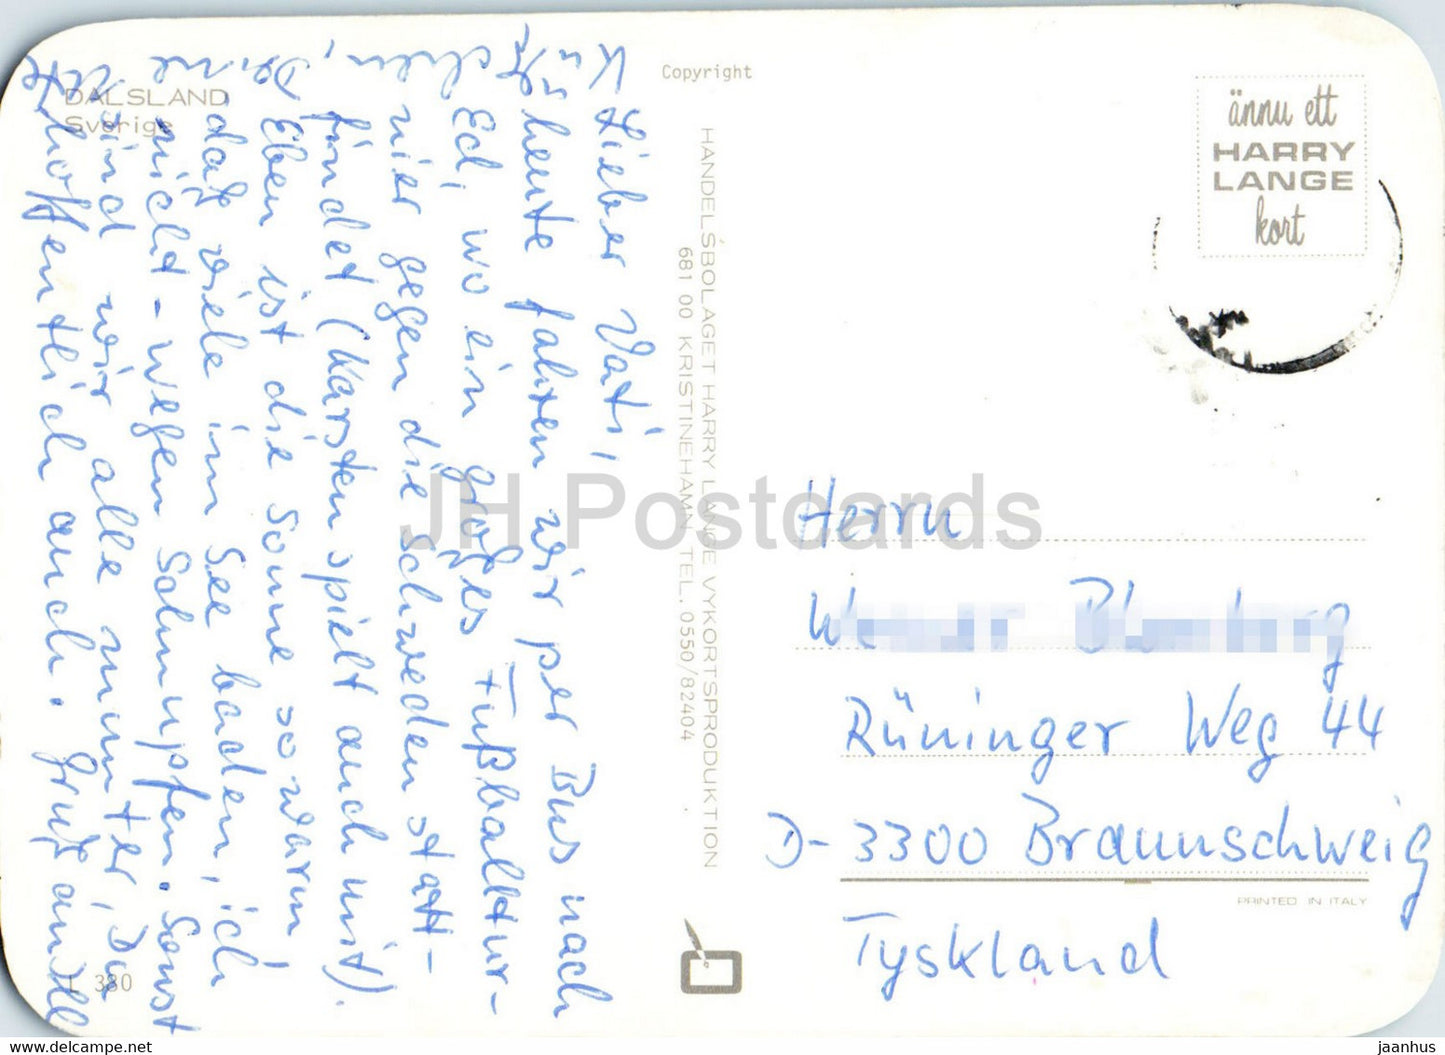 DALSLAND
Sverige
Lieber Vati,
heute fahren wir per Bus nach
Ed, wo ein großes Fußballtur-
nier gegen die Schweden statt-
findet (Karsten spielt auch mit).
Eben ist die Sonne so warm,
daß viele im See baden, ich
nicht - wegen Schnupfen. Sonst
sind wir alle munter, Du
hoffentlich auch. Gruß an alle
Küßchen,
Deine
L 380
Copyright
HANDELSBOLAGET HARRY LANGE VYKORTSPRODUKTION
681 00 KRISTINEHAMN TEL. 0550/82404
ännu ett
HARRY
LANGE
kort
Herrn
Rüninger Weg 44
D-3300 Braunschweig
PRINTED IN ITALY
Tyskland
JH Postcards
www.delcampe.net
jaanhus